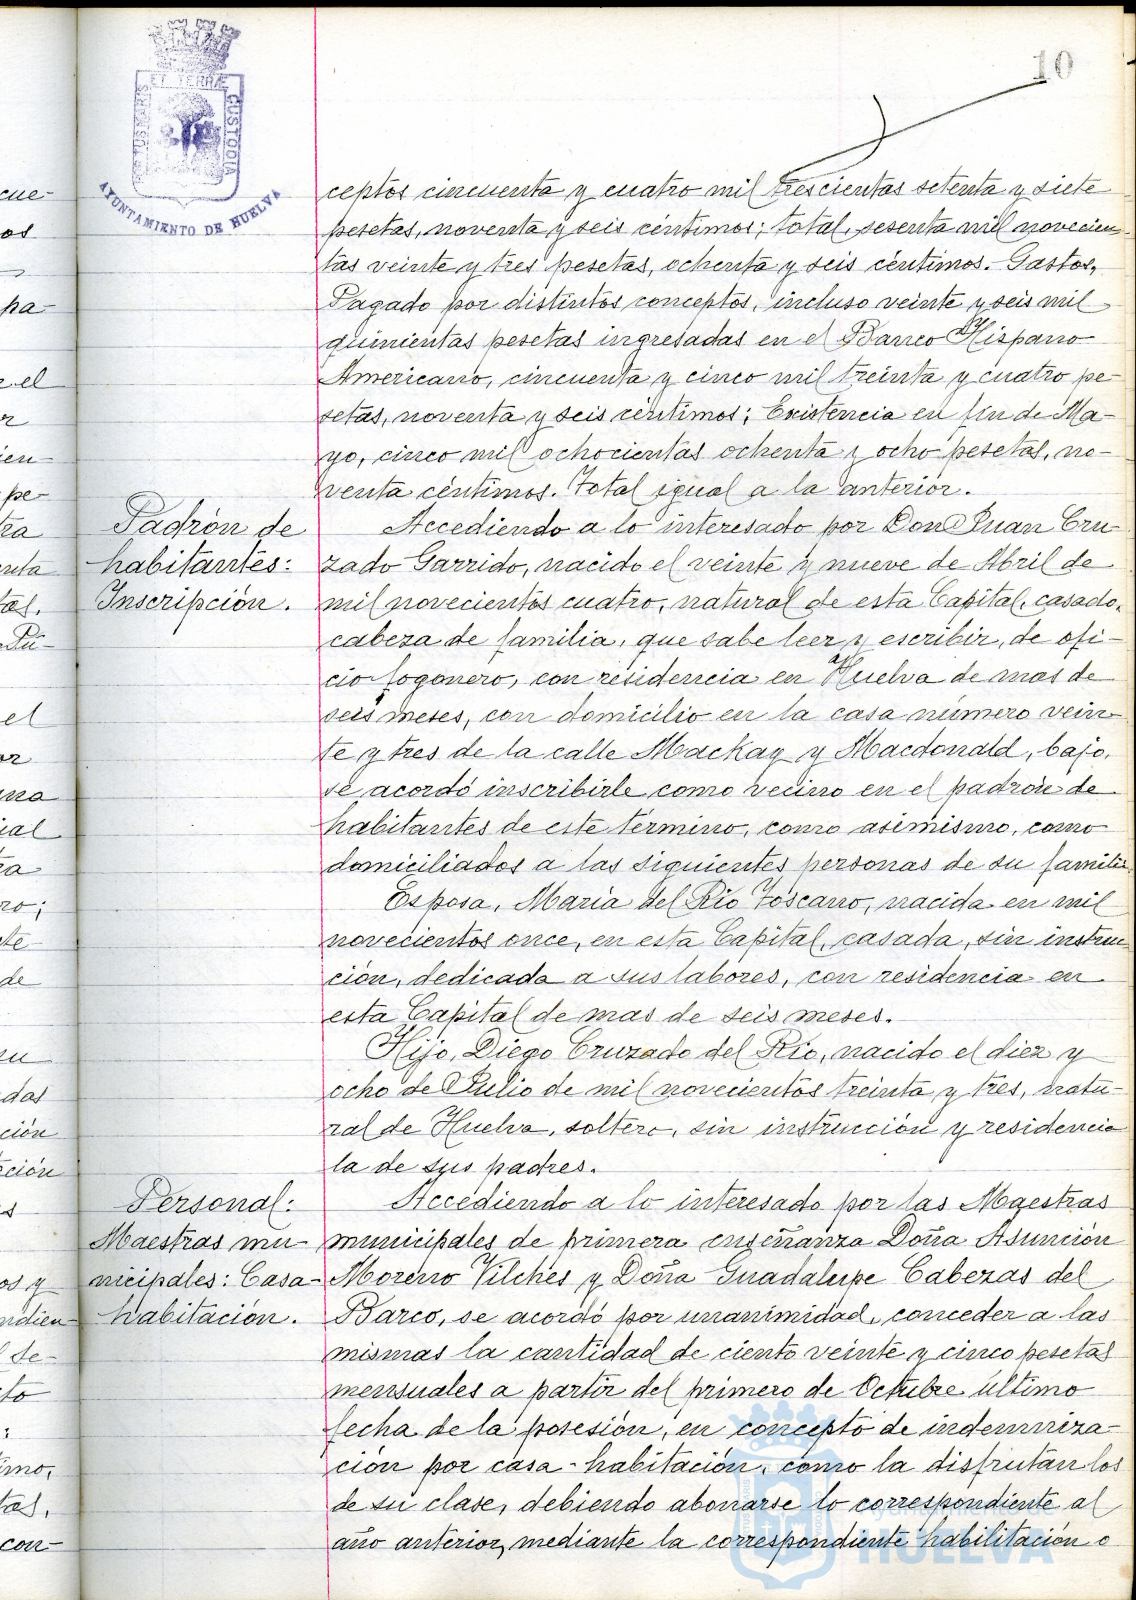 10
PORTUS MARIS ET TERRÆ CUSTODIA
AYUNTAMIENTO DE HUELVA
ceptos cincuenta y cuatro mil trescientas setenta y siete
pesetas, noventa y seis céntimos; total, sesenta mil novecien-
tas veinte y tres pesetas, ochenta y seis céntimos.- Gastos,
Pagado por distintos conceptos, incluso veinte y seis mil
quinientas pesetas ingresadas en el Banco Hispano
Americano, cincuenta y cinco mil treinta y cuatro pe-
setas, noventa y seis céntimos; Existencia en fin de Ma-
yo, cinco mil ochocientas ochenta y ocho pesetas, no-
venta céntimos. Total igual a la anterior.
Padrón de
habitantes:
Inscripción.
Accediendo a lo interesado por Don Juan Cru-
zado Garrido, nacido el veinte y nueve de Abril de
mil novecientos cuatro, natural de esta Capital, casado,
cabeza de familia, que sabe leer y escribir, de ofi-
cio fogonero, con residencia en Huelva de mas de
seis meses, con domicilio en la casa número vein-
te y tres de la calle Mackay y Macdonald, bajo,
se acordó inscribirle como vecino en el padrón de
habitantes de este término, como asimismo, como
domiciliados a las siguientes personas de su familia
Esposa, María del Río Toscano, nacida en mil
novecientos once, en esta Capital, casada, sin instruc-
ción, dedicada a sus labores, con residencia en
esta Capital de mas de seis meses.
Hijo, Diego Cruzado del Río, nacido el diez y
ocho de Julio de mil novecientos treinta y tres, natu-
ral de Huelva, soltero, sin instrucción y residencia
la de sus padres.
Personal:
Maestras mu-
nicipales: Casa-
habitación.
Accediendo a lo interesado por las Maestras
municipales de primera enseñanza Doña Asunción
Moreno Vilches y Doña Guadalupe Cabezas del
Barco, se acordó por unanimidad, conceder a las
mismas la cantidad de ciento veinte y cinco pesetas
mensuales a partir del primero de Octubre último
fecha de la posesión, en concepto de indemniza-
ción por casa-habitación, como la disfrutan los
de su clase, debiendo abonarse lo correspondiente al
año anterior, mediante la correspondiente habilitación o
Ayuntamiento de
HUELVA